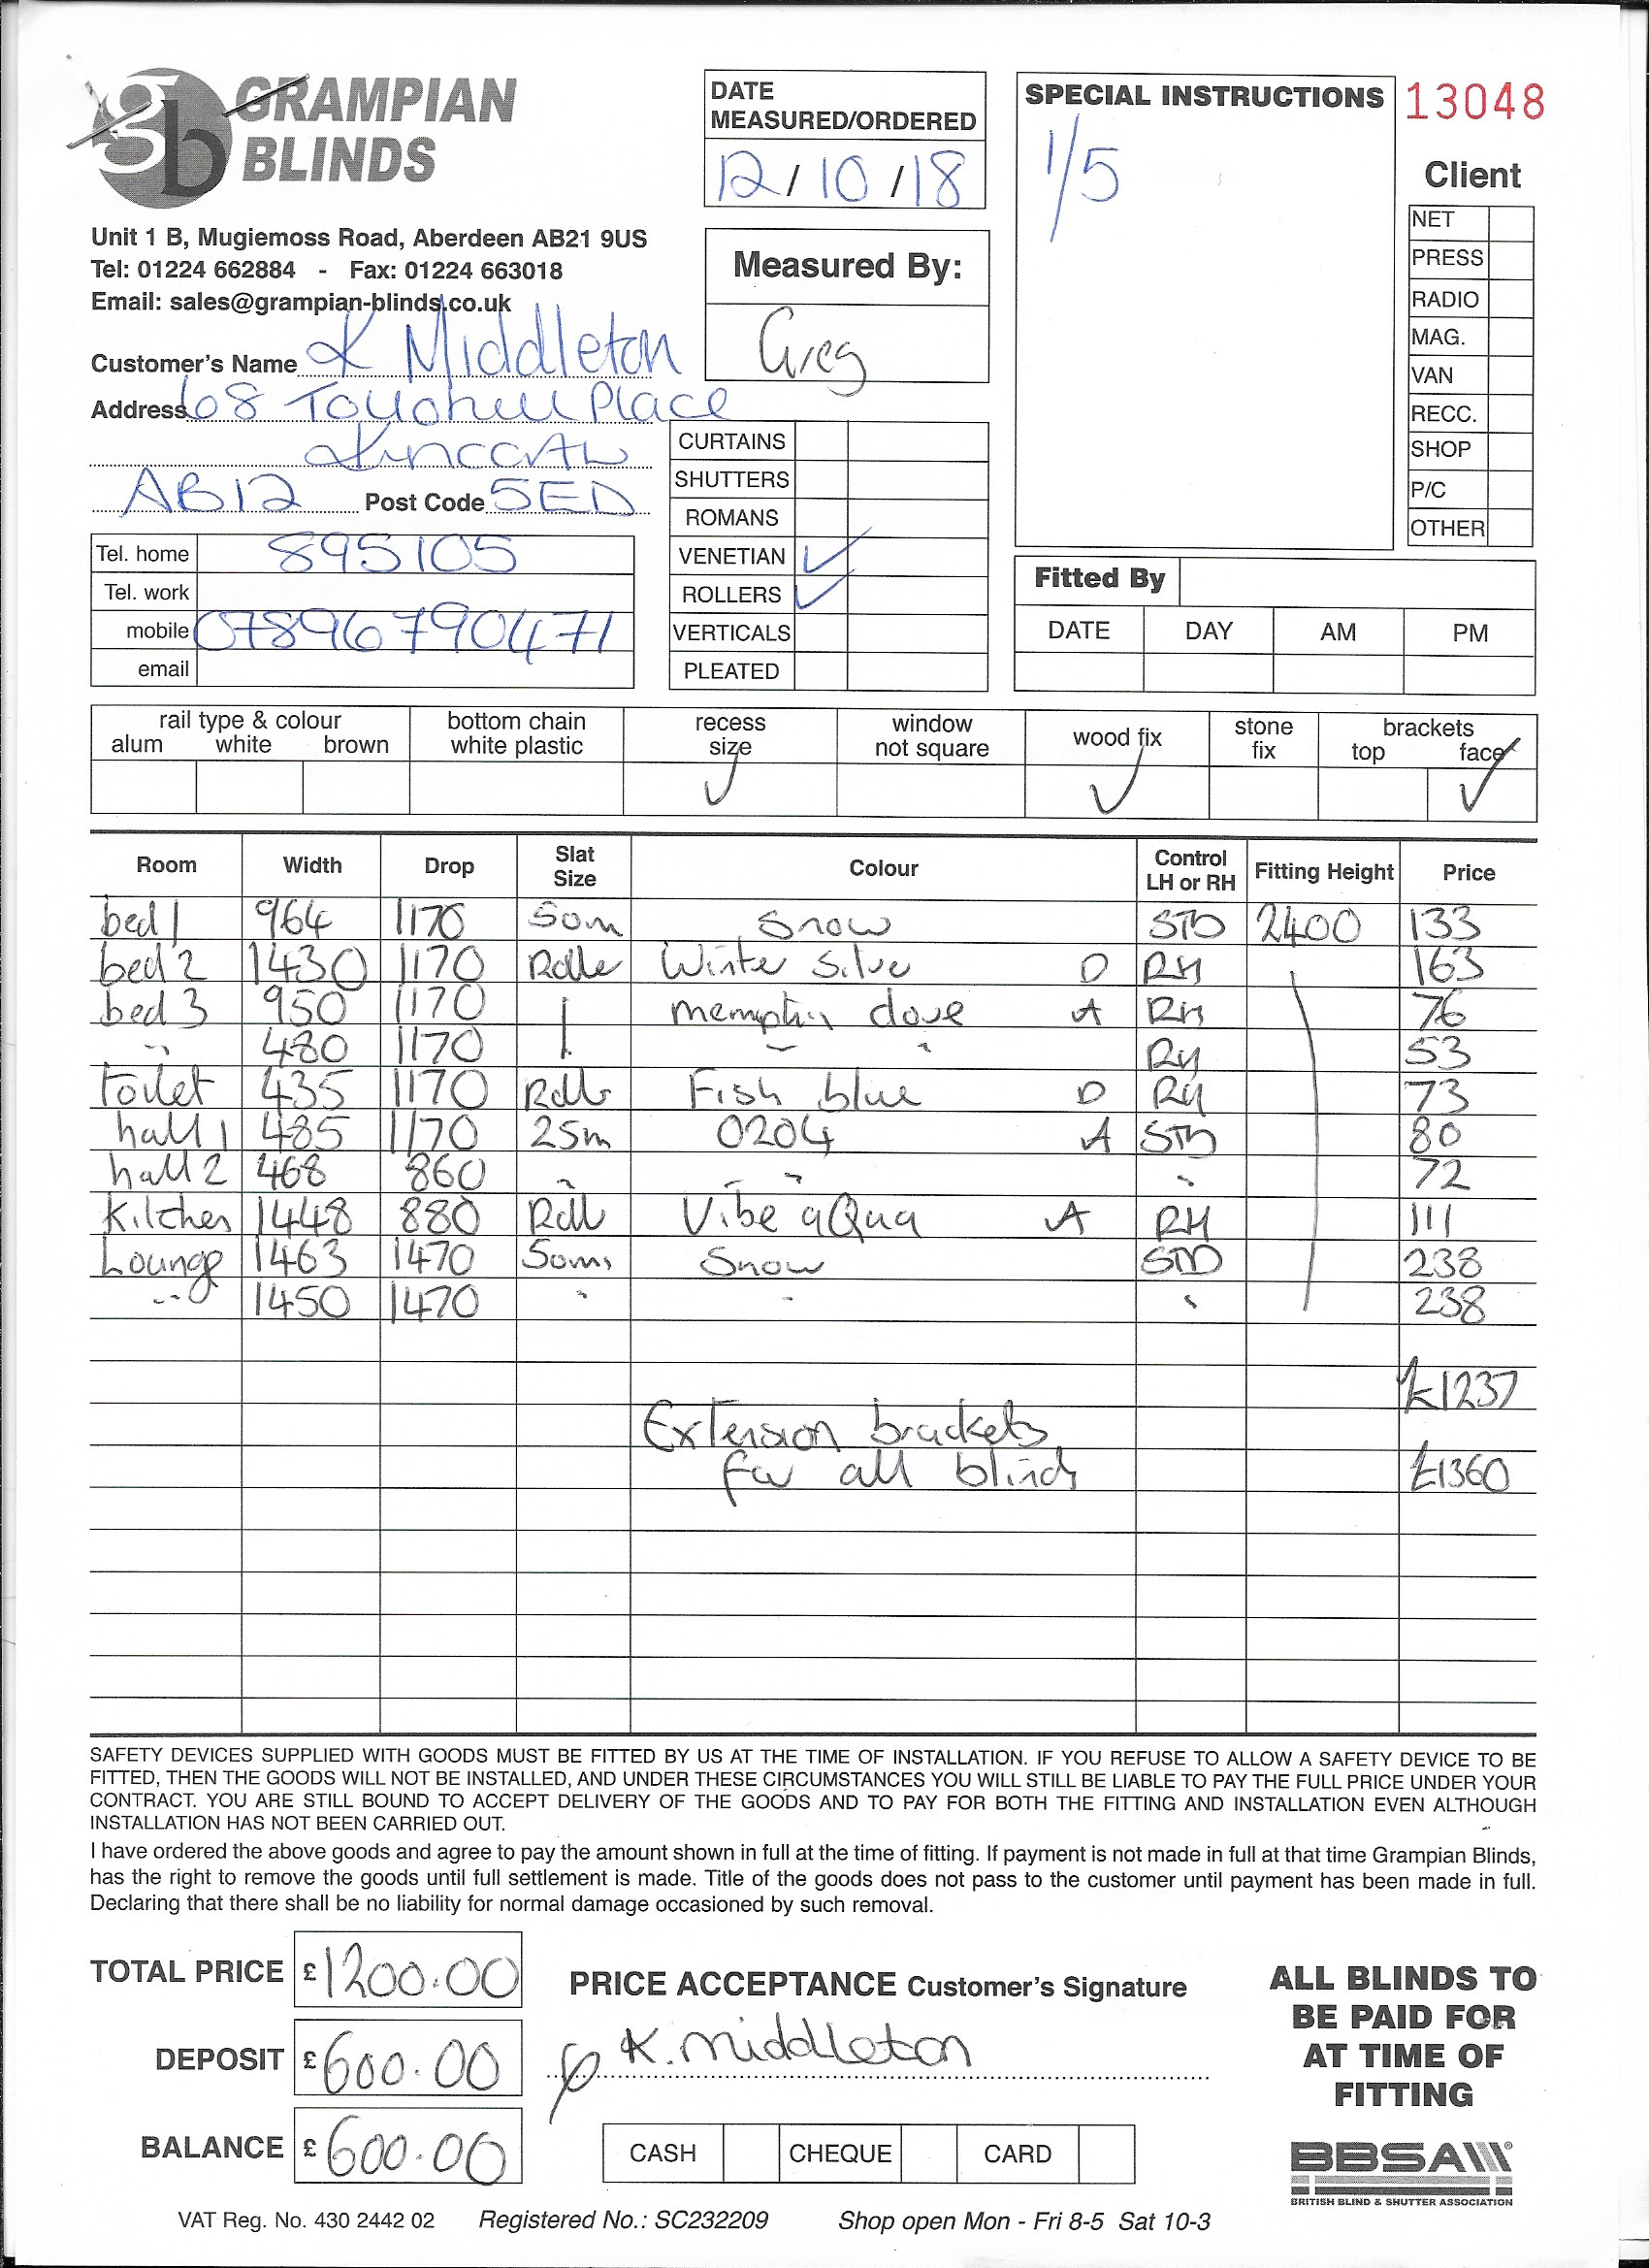 gb GRAMPIAN BLINDS
Unit 1 B, Mugiemoss Road, Aberdeen AB21 9US
Tel: 01224 662884 - Fax: 01224 663018
Email: sales@grampian-blinds.co.uk
DATE MEASURED/ORDERED
12/10/18
Measured By:
Greg
SPECIAL INSTRUCTIONS
1/5
13048
Client
NET
PRESS
RADIO
MAG.
VAN
RECC.
SHOP
P/C
OTHER
Customer's Name K Middleton
Address 68 Place
AB12 Post Code 5ED
Tel. home 895105
Tel. work
mobile 07896790471
email
CURTAINS
SHUTTERS
ROMANS
VENETIAN ✓
ROLLERS ✓
VERTICALS
PLEATED
Fitted By
DATE DAY AM PM
rail type & colour
alum white brown
bottom chain
white plastic
recess
size ✓
window
not square
wood fix ✓
stone
fix
brackets
top face ✓
Room Width Drop Slat Size Colour Control LH or RH Fitting Height Price
bed 1 964 1170 50m Snow STD 2400 133
bed 2 1430 1170 Rolle Winter Silve D RH 163
bed 3 950 1170 memphis dove A RH 76
" 480 1170 " " RH 53
toilet 435 1170 Rolle Fish blue D RH 73
hall 1 485 1170 25m 0204 A STD 80
hall 2 468 860 " " " " 72
Kitchen 1448 880 Roll Vibe aQua A RH 111
Lounge 1463 1470 50mm Snow STD 238
" 1450 1470 " " " 238
£1237
Extension brackets
for all blinds £1360
SAFETY DEVICES SUPPLIED WITH GOODS MUST BE FITTED BY US AT THE TIME OF INSTALLATION. IF YOU REFUSE TO ALLOW A SAFETY DEVICE TO BE
FITTED, THEN THE GOODS WILL NOT BE INSTALLED, AND UNDER THESE CIRCUMSTANCES YOU WILL STILL BE LIABLE TO PAY THE FULL PRICE UNDER YOUR
CONTRACT. YOU ARE STILL BOUND TO ACCEPT DELIVERY OF THE GOODS AND TO PAY FOR BOTH THE FITTING AND INSTALLATION EVEN ALTHOUGH
INSTALLATION HAS NOT BEEN CARRIED OUT.
I have ordered the above goods and agree to pay the amount shown in full at the time of fitting. If payment is not made in full at that time Grampian Blinds,
has the right to remove the goods until full settlement is made. Title of the goods does not pass to the customer until payment has been made in full.
Declaring that there shall be no liability for normal damage occasioned by such removal.
TOTAL PRICE £1200.00
DEPOSIT £600.00
BALANCE £600.00
PRICE ACCEPTANCE Customer's Signature
K. middleton
CASH CHEQUE CARD
ALL BLINDS TO
BE PAID FOR
AT TIME OF
FITTING
BBSA
BRITISH BLIND & SHUTTER ASSOCIATION
VAT Reg. No. 430 2442 02 Registered No.: SC232209 Shop open Mon - Fri 8-5 Sat 10-3